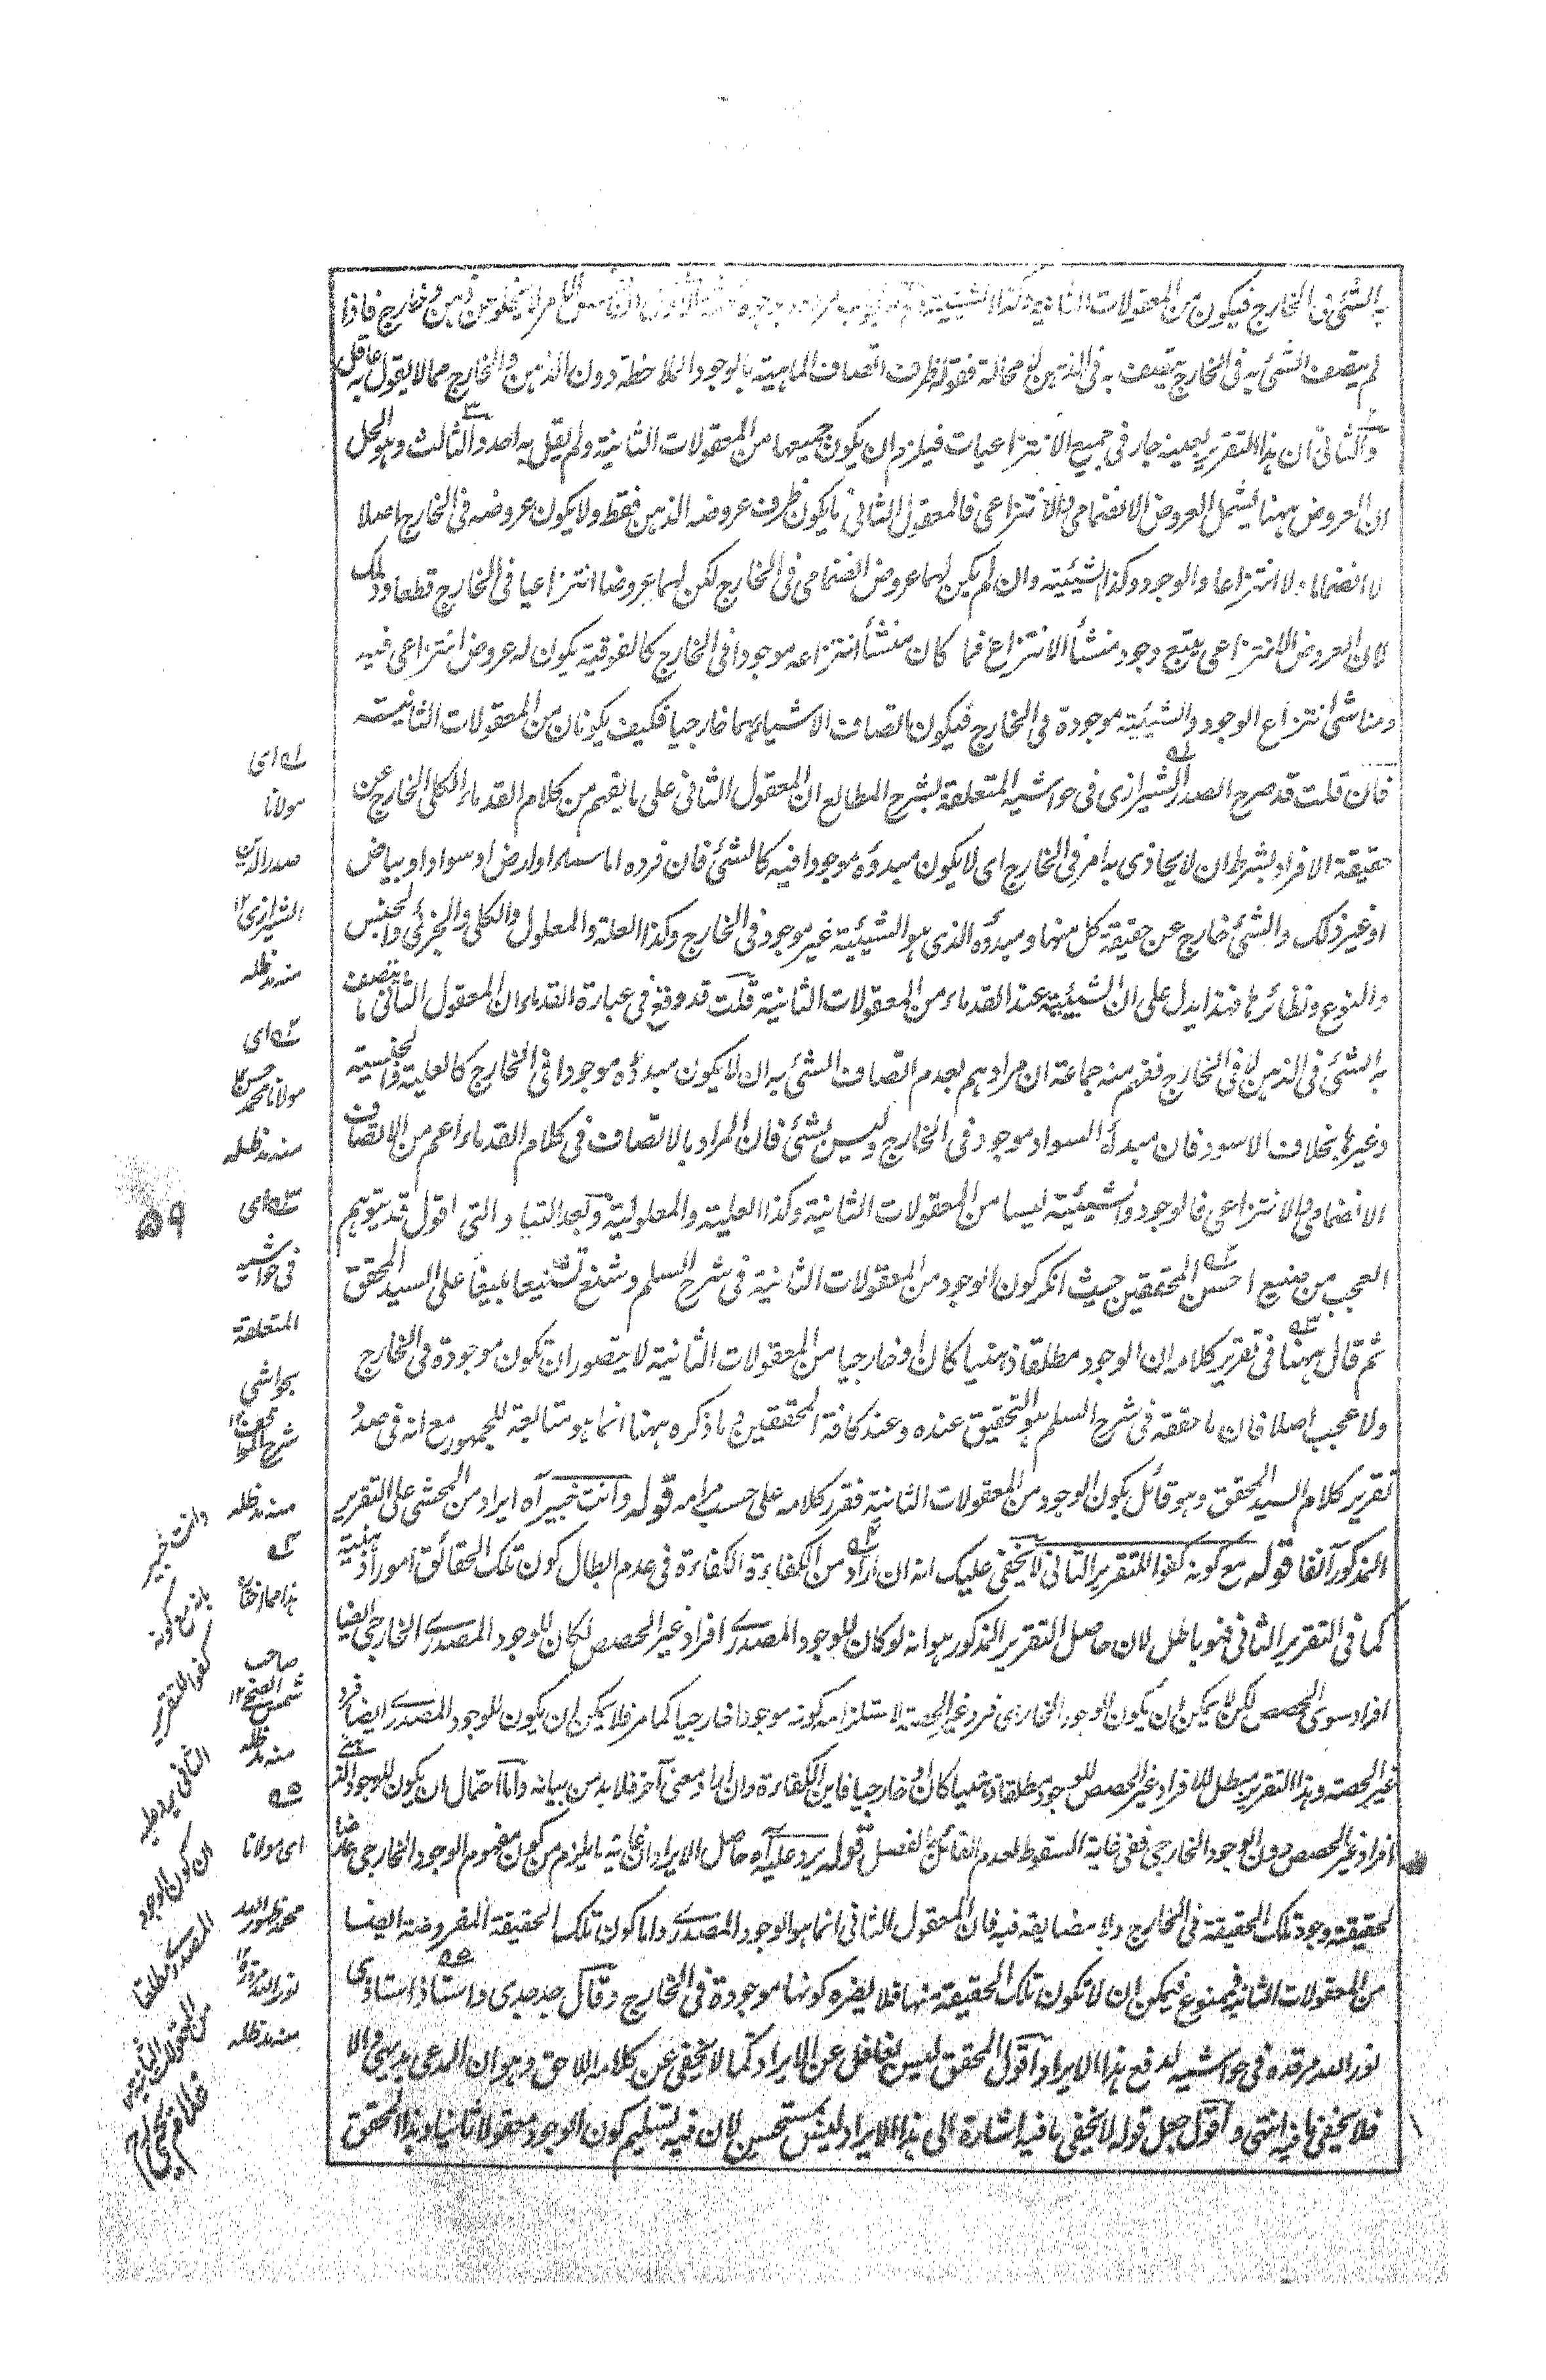 به الشئ فى الخارج فيكون من المعقولات الثانية وكذا الشيئية لا يخلو عن ذهن وخارج فاذا
لم يتصف الشئ به فى الخارج يتصف به فى الذهن لا محالة فقوله ظرف اتصاف الماهية بالوجود الملاحظة دون الذهن والخارج مما لا يقول به عاقل
والثانى ان هذا التقرير بعينه جار فى جميع الانتزاعيات فيلزم ان يكون جميعها من المعقولات الثانية ولم يقل به احد والثالث وهو الحل
ان العروض ههنا يشمل العروض الانضمامى والانتزاعى فالمعقول الثانى ما يكون ظرف عروضه الذهن فقط ولا يكون عروضه فى الخارج اصلا
لا انضماما ولا انتزاعا والوجود وكذا الشيئية وان لم يكن لهما عروض انضمامى فى الخارج لكن لهما عروضا انتزاعيا فى الخارج قطعا وذلك
لان العروض الانتزاعى يتبع وجود منشأ الانتزاع فما كان منشأ انتزاعه موجودا فى الخارج كالفوقية يكون له عروض انتزاعى فيه
ومناشى انتزاع الوجود والشيئية موجودة فى الخارج فيكون اتصاف الاشياء بهما خارجيا فكيف يكونان من المعقولات الثانية
فان قلت قد صرح الصدر الشيرازى فى حواشيه المتعلقة بشرح المطالع ان المعقول الثانى على ما يفهم من كلام القدماء الكلى الخارج عن
حقيقة الافراد بشرط ان لا يحاذى به امر فى الخارج اى لا يكون مبدؤه موجودا فيه كالشئ فان فرده اما سماء او ارض او سواد او بياض
او غير ذلك والشئ خارج عن حقيقة كل منها ومبدؤه الذى هو الشيئية غير موجود فى الخارج وكذا العلة والمعلول والكلى والجزئى والجنس
والنوع ونظائرها فهذا يدل على ان الشيئية عند القدماء من المعقولات الثانية قلت قد وقع فى عبارة القدماء ان المعقول الثانى ما يتصف
به الشئ فى الذهن لا فى الخارج ففهم منه جماعة ان مرادهم بعدم اتصاف الشئ به ان لا يكون مبدؤه موجودا فى الخارج كالعلية والجنسية
وغيرها بخلاف الاسود فان مبدأه السواد موجود فى الخارج وليس بشئ فان المراد بالاتصاف فى كلام القدماء اعم من الاتصاف
الانضمامى والانتزاعى فالوجود والشيئية ليسا من المعقولات الثانية وكذا العلية والمعلولية وبعد اللتيا والتى اقول قد يتوهم
العجب من صنيع احسن المحققين حيث انكر كون الوجود من المعقولات الثانية فى شرح السلم وشنع تشنيعا بليغا على السيد المحقق
ثم قال ههنا فى تقرير كلامه ان الوجود مطلقا ذهنيا كان او خارجيا من المعقولات الثانية لا يتصور ان تكون موجودة فى الخارج
ولا عجب اصلا فان ما حققه فى شرح السلم هو التحقيق عنده وعند كافة المحققين وما ذكره ههنا انما هو متابعة للجمهور مع انه فى صدد
تقرير كلام السيد المحقق وهو قائل بكون الوجود من المعقولات الثانية فقرر كلامه على حسب مرامه قوله وانت خبير آه ايراد من المحشى على التقرير
المذكور آنفا قوله مع كونه كفوا للتقرير الثانى لا يخفى عليك انه ان اراد من الكفاءة الكفاءة فى عدم ابطال كون تلك الحقائق امورا ذهنية
كما فى التقرير الثانى فهو باطل لان حاصل التقرير المذكور هو انه لو كان للوجود المصدرى افراد غير الحصص لكان للوجود المصدرى الخارجى ايضا
افراد سوى الحصص لكن لا يمكن ان يكون للوجود الخارجى فرد غير الحصة لاستلزامه كونه موجودا خارجيا كما مر فلا يمكن ان يكون للوجود المصدرى ايضا فرد
غير الحصة وهذا التقرير مبطل للافراد غير الحصص للوجود مطلقا ذهنيا كان او خارجيا فاين الكفاءة وان اراد معنى آخر فلا بد من بيانه واما احتمال ان يكون للوجود الذهنى
افراد غير الحصص دون الوجود الخارجى ففى غاية السقوط لعدم القائل بالفصل قوله يرد عليه آه حاصل الايراد ان غاية ما يلزم من كون مفهوم الوجود الخارجى عارضا
لحقيقته وجود تلك الحقيقة فى الخارج ولا مضايقة فيه فان المعقول الثانى انما هو الوجود المصدرى واما كون تلك الحقيقة المفروضة ايضا
من المعقولات الثانية فممنوع فيمكن ان لا تكون تلك الحقيقة منها فلا يضره كونها موجودة فى الخارج وقال جد جدى واستاذ استاذى
نور الله مرقده فى حواشيه لدفع هذا الايراد اقول المحقق ليس بغافل عن الايراد كما لا يخفى عن كلامه اللاحق وهو ان المدعى بديهى والا
فلا يخفى ما فيه انتهى واقول جعل قوله لا يخفى ما فيه اشارة الى هذا الايراد ليس بمستحسن لان فيه تسليم كون الوجود معقولا ثانيا وهذا المحقق
له اى
مولانا
صدر الدين
الشيرازى ١٢
منه مد ظله
٢ه اى
مولانا محمد حسن
منه مد ظله
٣ه اى
فى حواشيه
المتعلقة
بحواشى
شرح المواقف ١٢
منه مد ظله
٤ه
صاحب
شمس الضحى ١٢
منه مد ظله
٥ه
اى مولانا
محمد ظهور الله
نور الله مرقده ١٢
منه مد ظله
وانت خبير
بانه مع كونه
كفوا للتقرير
الثانى يرد عليه
ان كون الوجود
المصدرى مطلقا
من المعقولات الثانية
غلام يحيى
٥٩